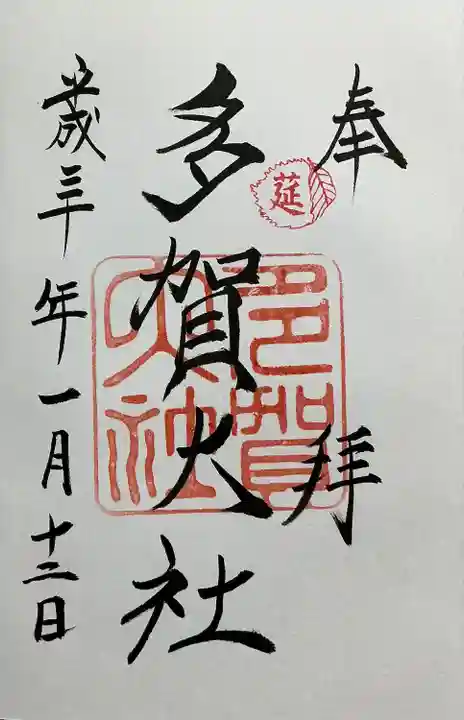 奉拝
莚
多賀大社
多賀大社
歳三年一月十二日